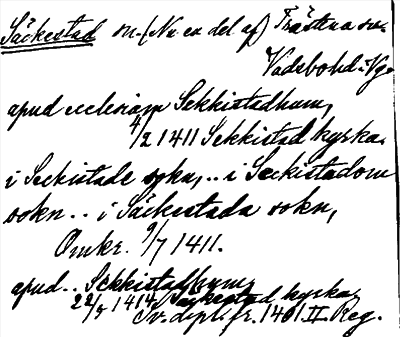 Säckestad sn. (Nu en del af) Trästena sn.
Vadsbohd. Vg.
apud ecclesiam Sekkistadhum,
4/2 1411 Sekkistad kyrka.
i Seckistade sokn, .. i Sæckistadom
sokn .. i Säckestada sokn,
Omkr. 9/7 1411.
apud .. Sekkistadhum,
22/5 1414 Säkestad kyrka,
Sv. dipl. fr. 1401. II. Reg.